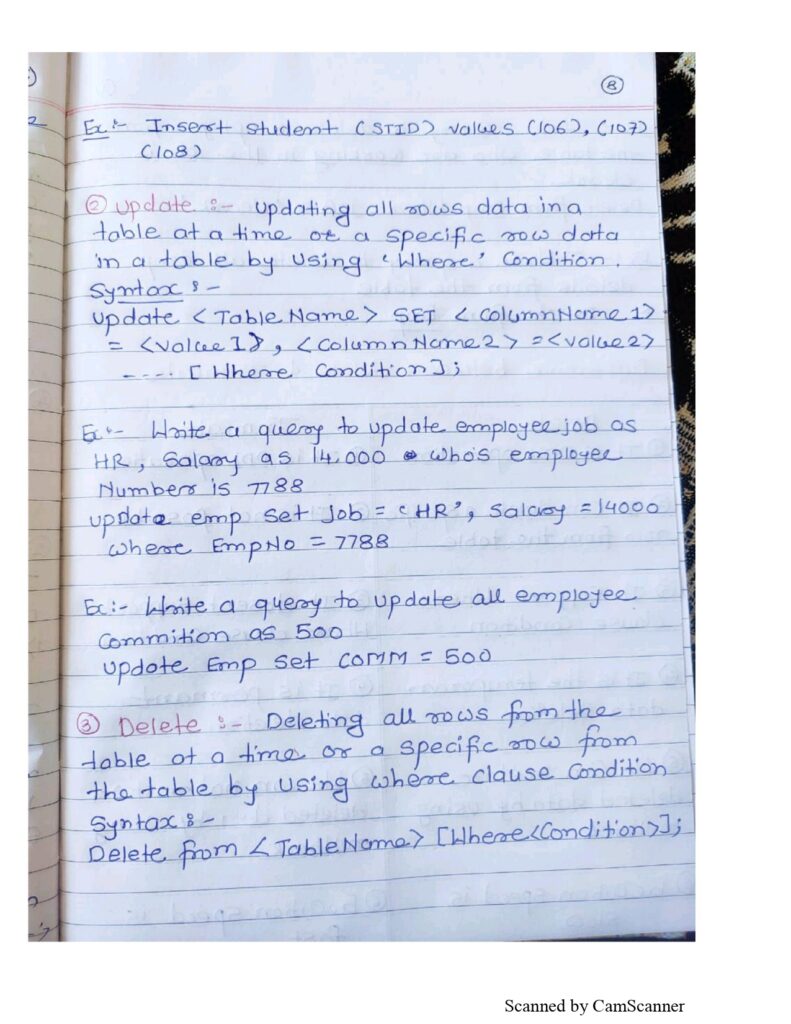 8
2
Ex:- Insert student (STID) values (106), (107)
(108)
② update :- updating all rows data in a
table at a time or a specific row data
in a table by using 'Where' Condition.
Syntax :-
update <Table Name> SET <ColumnName1>
= <value1>, <ColumnName2> =<value2>
---- [Where Condition];
Ex:- Write a query to update employee job as
HR, Salary as 14000 who's employee
Number is 7788
update emp set Job = 'HR', Salary =14000
where EmpNo = 7788
Ex:- Write a query to update all employee
Commition as 500
update Emp set COMM = 500
③ Delete :- Deleting all rows from the
table at a time or a specific row from
the table by using where clause Condition
Syntax :-
Delete from <TableName> [Where<Condition>];
Scanned by CamScanner